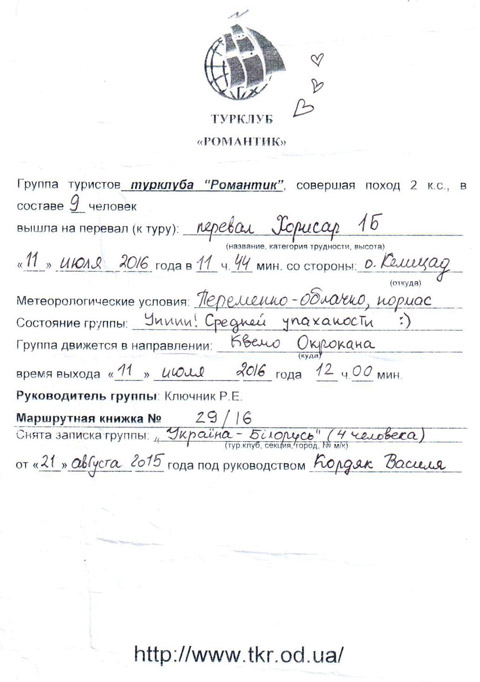 ТУРКЛУБ
«РОМАНТИК»
Группа туристов турклуба "Романтик", совершая поход 2 к.с., в
составе 9 человек
вышла на перевал (к туру): перевал Хорисар 1Б
(название, категория трудности, высота)
«11» июля 2016 года в 11 ч. 44 мин. со стороны: о. Келицад
(откуда)
Метеорологические условия: Переменно-облачно,
Состояние группы: Уииии! Средней упаханости :)
Группа движется в направлении: Квемо Окрокана
(куда)
время выхода «11» июля 2016 года 12 ч. 00 мин.
Руководитель группы: Ключник Р.Е.
Маршрутная книжка № 29/16
Снята записка группы: „Україна - Білорусь" (4 человека)
(тур.клуб, секция, город, № м/к)
от «21» августа 2015 года под руководством Кордяк Василя
http://www.tkr.od.ua/